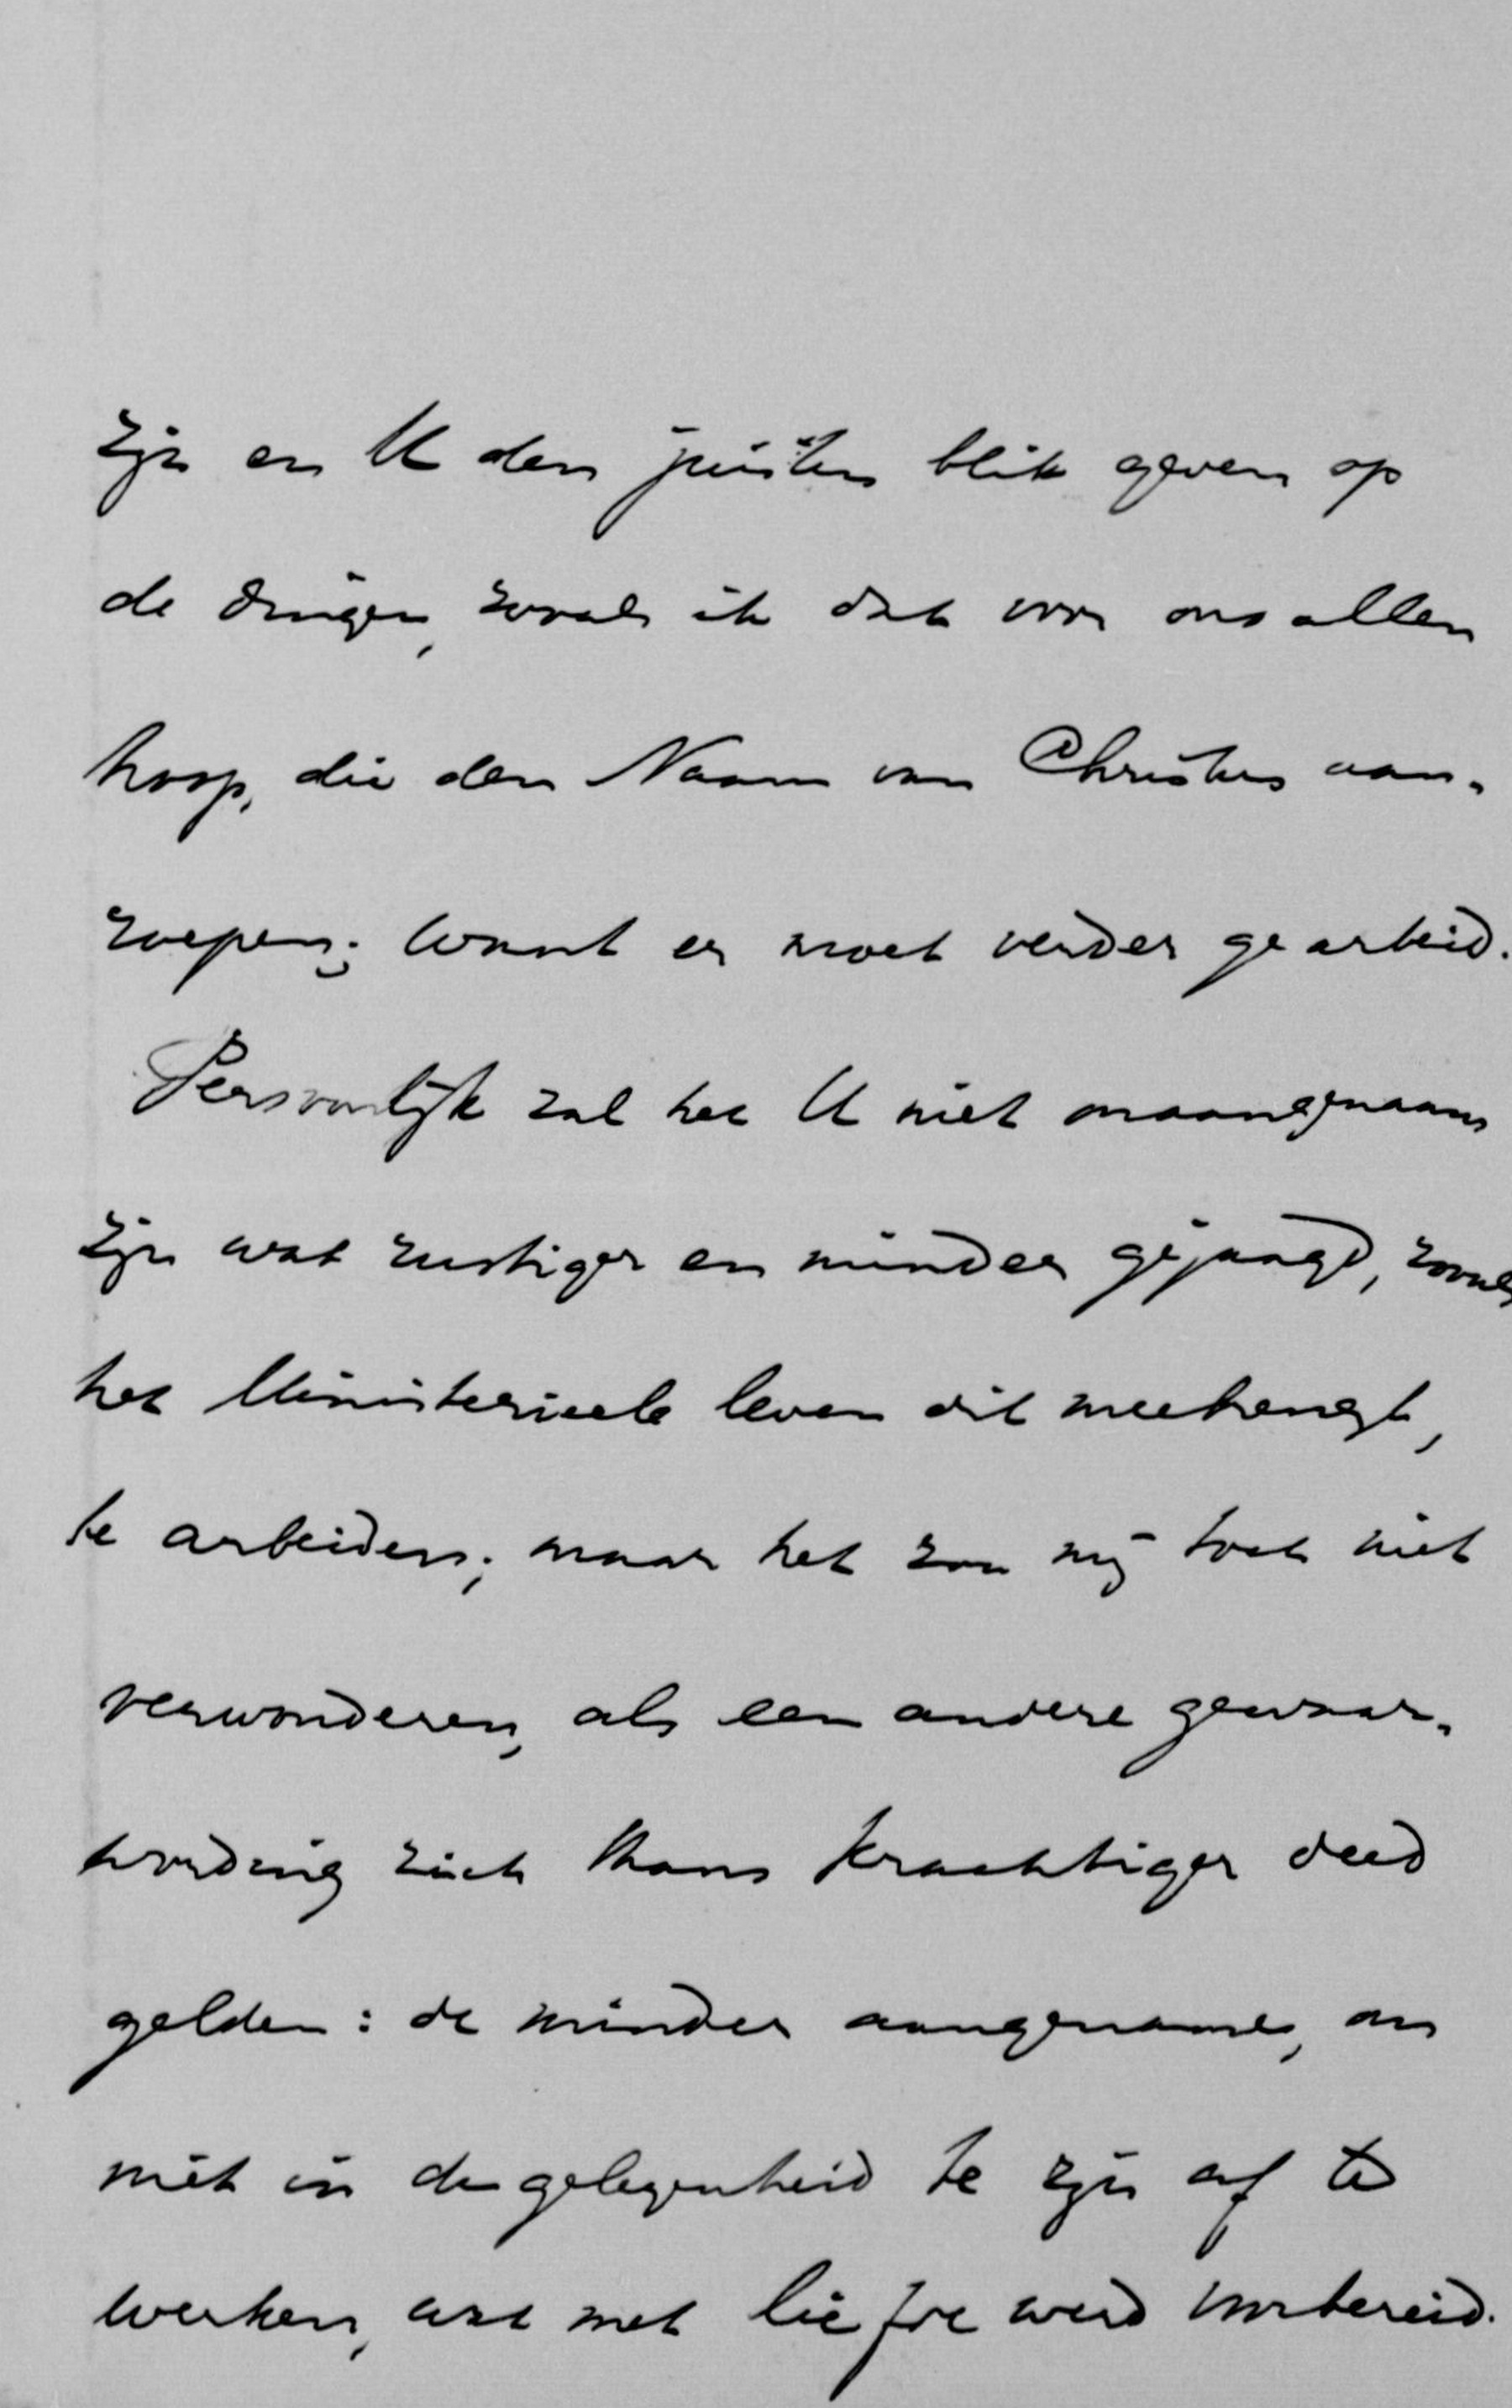 zijn en U den juisten blik geven op
de dingen, zooals ik dat voor ons allen
hoop, die den Naam van Christus aan-
roepen; want er moet verder gearbeid.
Persoonlijk zal het U niet onaangenaam
zijn wat rustiger en minder gejaagd, zooals
het Ministerieele leven dit meebrengt,
te arbeiden; maar het zou mij toch niet
verwonderen, als een andere gewaar-
wording zich thans krachtiger deed
gelden: de minder aangename, om
niet in de gelegenheid te zijn af te
werken, wat met liefde werd voorbereid.